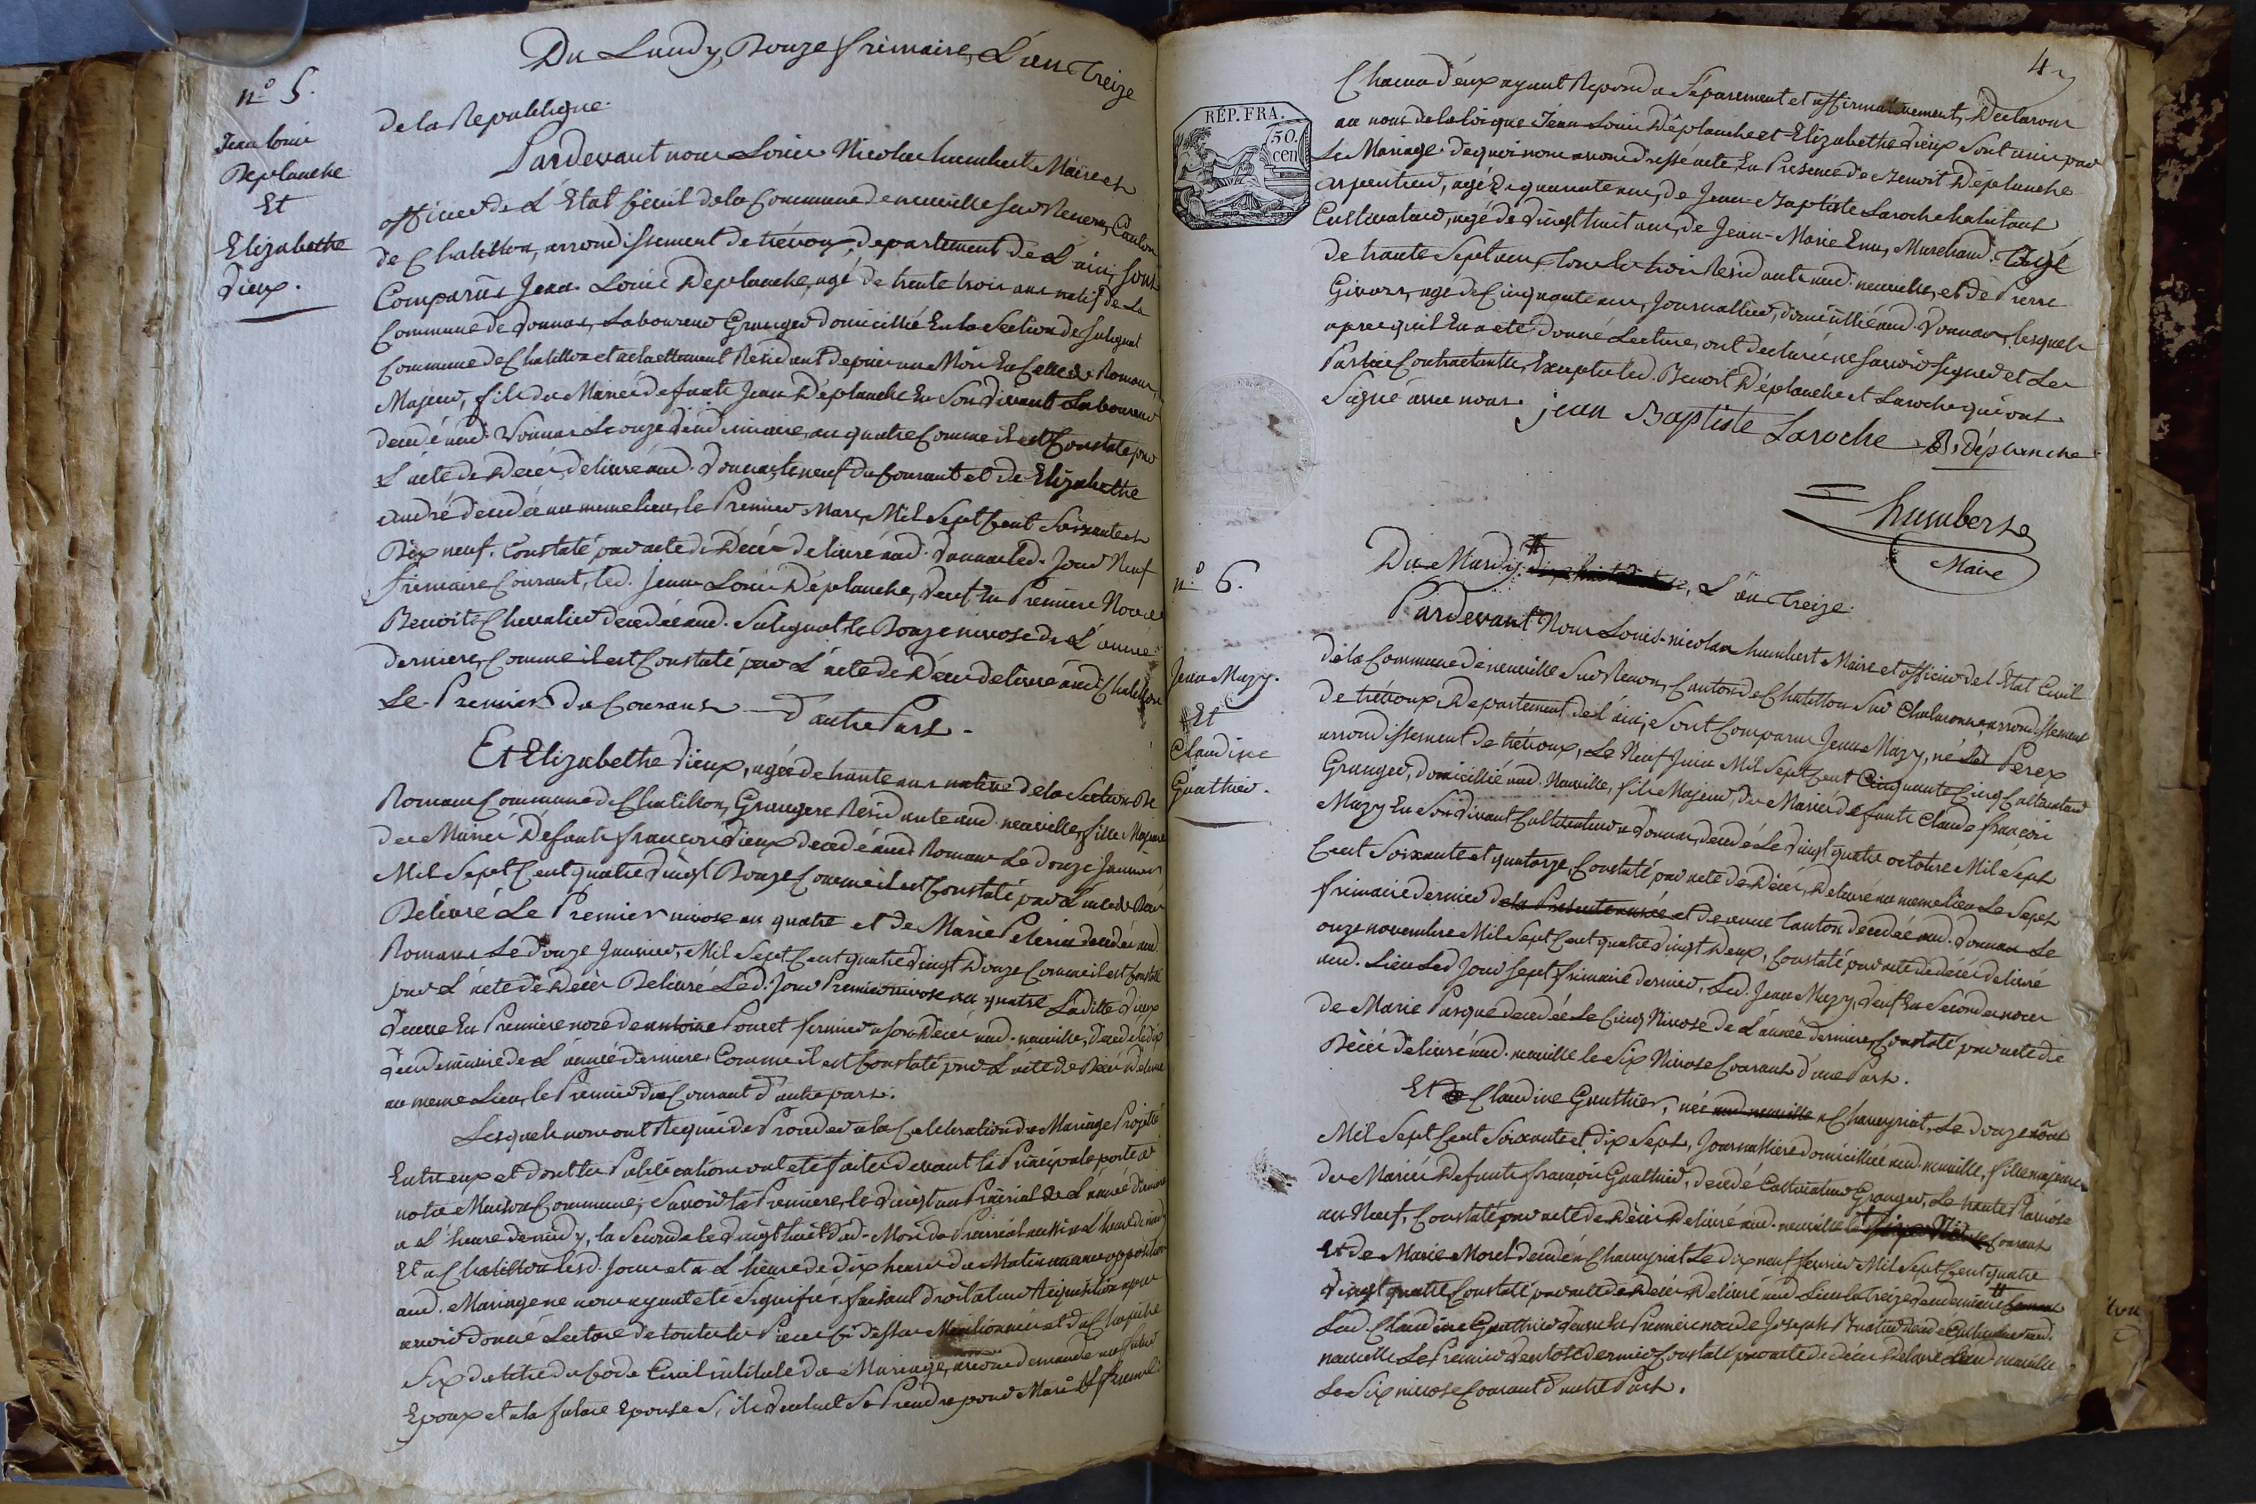 Du Lundy Douze frimaire, L'an Treize
n.° 5.
Jean louis
Deplanche
Et
Elizabethe
Dieux.
de la Republique.
Pardevant nous Louis Nicolas humbert Maire et
officier de L'Etat Civil de la Commune de neuville sur Renom, Canton
de Chatillon, arrondissement de trévoux, departement de L'ain, sont
Comparus Jean Louis Deplanche, agé de trente trois ans natif de La
Commune de Vonnas, Laboureur Granger domicillié En la Section de Sulignat
Commune de Chatillon et actuellement Résidant depuis un Mois En Celle de Romans,
Majeur, fils du Marié defunts Jean Déplanche En Son Vivant Laboureur
decedé aud. Vonnas Le onze Vendémiaire, an quatre Comme il est Constaté par
L'acte de Décès délivré aud. Vonnas, le neuf du Courant et de Elizabethe
André decedée au meme lieu, le Premier Mars, Mil Sept Cent Soixante et
Dix neuf, Constaté par acte de Décès delivré aud. Vonnas led. Jour Neuf
frimaire Courant, led. Jean Louis Déplanche, Veuf En Premiere Noce de
Benoite Chevalier decedée aud. Sulignat le Douze nivose de L'année
derniere, Comme il est Constaté par L'acte de Décès delivré aud. Chatillon
Le Premier du Courant d'autre Part.
Et Elizabethe Dieux, agée de trante ans native de la Section De
Romans Commune de Chatillon, Grangere Residante aud. neuville, fille Majeure
de Mariés Défunts françois Dieux decedé aud. Romans Le douze Janvier
Mil Sept Cent quatre Vingt Douze Comme il est Constaté par L'acte de Décès
Delivré Le Premier nivose an quatre et de Marie Pelerin decedée aud.
Romans Le Douze Janvier, Mil Sept Cent quatre Vingt Douze Comme il est Constaté
par L'acte de Décès Delivré Led. Jour Premier nivose an quatre Laditte Dieux
Veuve En Premiere noce de antoine Poncet fermier a son Décès aud. neuville, decedé le dix
Vendemiaire de L'année derniere Comme il est Constaté par L'acte de Décès Delivré
au meme Lieu, le Premier du Courant d'autre part.
Lesquels nous ont Requis de Proceder a la Celebration du Mariage Projetté
Entre eux et dont les Publications ont été faites devant la Principale porte de
notre Maison Commune; Savoir la Premiere, le Vingt un Prairial de L'année derniere
a L'heure de midy, la Seconde le Vingt huit dud. Mois de Prairial aussi a L'heure de midy
Et a Chatillon lesd. Jours et a L'heure de dix heures du Matin aucune opposition
aud. Mariage ne nous ayant été Signifié, faisant droit a leur Requisition apres
avoir donné Lecture de toutes les Pieces Ci dessus Mentionnées et du Chapitre
Six du titre du Code Civil intitulé du Mariage, avons demandé au futur
Epoux et a la future Epouse S'ils Veulent Se Prendre pour Mari Et femme
4
RÉP. FRA.
50.
cen
Chacun d'eux ayant Repondu Séparement et affirmativement, Declarons
au nom de la loi que Jean Louis Déplanche et Elizabethe Dieux Sont unis par
Le Mariage. de quoi nous avons dressé acte, En Présence de Benoit Déplanche
arpenteur, agé de quarante ans, de Jean Baptiste Laroche habitant
Cultivateur, agé de Vingt huit ans, de Jean-Marie Enu, Marchand. agé
de trante Sept ans, tous les trois Residants aud. neuville, et de Pierre
Givors, agé de Cinquante ans, Journallier, domicillié aud. Vonnas, lesquels
apres qu'il En a été donné Lecture, ont declaré ne Savoir Signer et Les
Parties Contractantes, Excepté led. Benoit Déplanche et Laroche qui ont
Signé avec nous.
jean Baptiste Laroche B. déplanche
humbert
Maire
n.° 6.
Jean Mazy.
Et
Claudine
Gauthier.
Du Mardy, L'an Treize.
Pardevant Nous Louis-nicolas humbert Maire et officier de l'Etat Civil
de la Commune de neuville Sur Renom, Canton de Chatillon Sur Chalaronne, arrondissement
de trévoux, Departement de l'ain; Sont Comparus Jean Mazy, né a Perex
arrondissement de trévoux, Le Neuf Juin Mil Sept Cent Cinquante Cinq Cultivateur
Granger, domicillié aud. Neuville, fils Majeur, du Mariés defunts Claude françois
Mazy En Son Vivant Cultivateur a Vonnas, decedé Le Vingt quatre octobre Mil Sept
Cent Soixante et quatorze, Constaté par acte de Décès, Delivré au meme lieu Le Sept
frimaire dernier de la Presente année et de anne Canton decedée aud. Vonnas Le
onze novembre Mil Sept Cent quatre Vingt Deux, Constaté par acte de décès delivré
aud. Lieu Led Jour Sept frimaire dernier, Led. Jean Mazy, Veuf En Seconde noces
de Marie Pasque decedée Le Cinq Nivose de L'année derniere, Constaté par acte de
Décès délivré aud. neuville le Six Nivose Courant d'une Part.
Et Claudine Gauthier, née aud neuville a Chaveyriat, Le douze août
Mil Sept Cent Soixante et dix Sept, Journalliere domicilliée aud. neuville, fille majeure
de Mariés Defunts françois Gauthier, decedé Cultivateur Granger, Le trante Pluviose
an Neuf, Constaté par acte de Décès Delivré aud. neuville le Nivose Courant
Et de Marie Morel decedée a Chaveyriat Le dix neuf fevrier Mil Sept Cent quatre
Vingt quatre Constaté par acte de Décès Delivré aud Lieu le treize Vendemiaire
Lad. Claudine Gauthier Veuve En Premiere noce de Joseph decedé Cultivateur aud.
neuville Le Premier Ventose dernier Constaté par acte de décès Delivré aud neuville
Le Six nivose Courant d'autre Part.